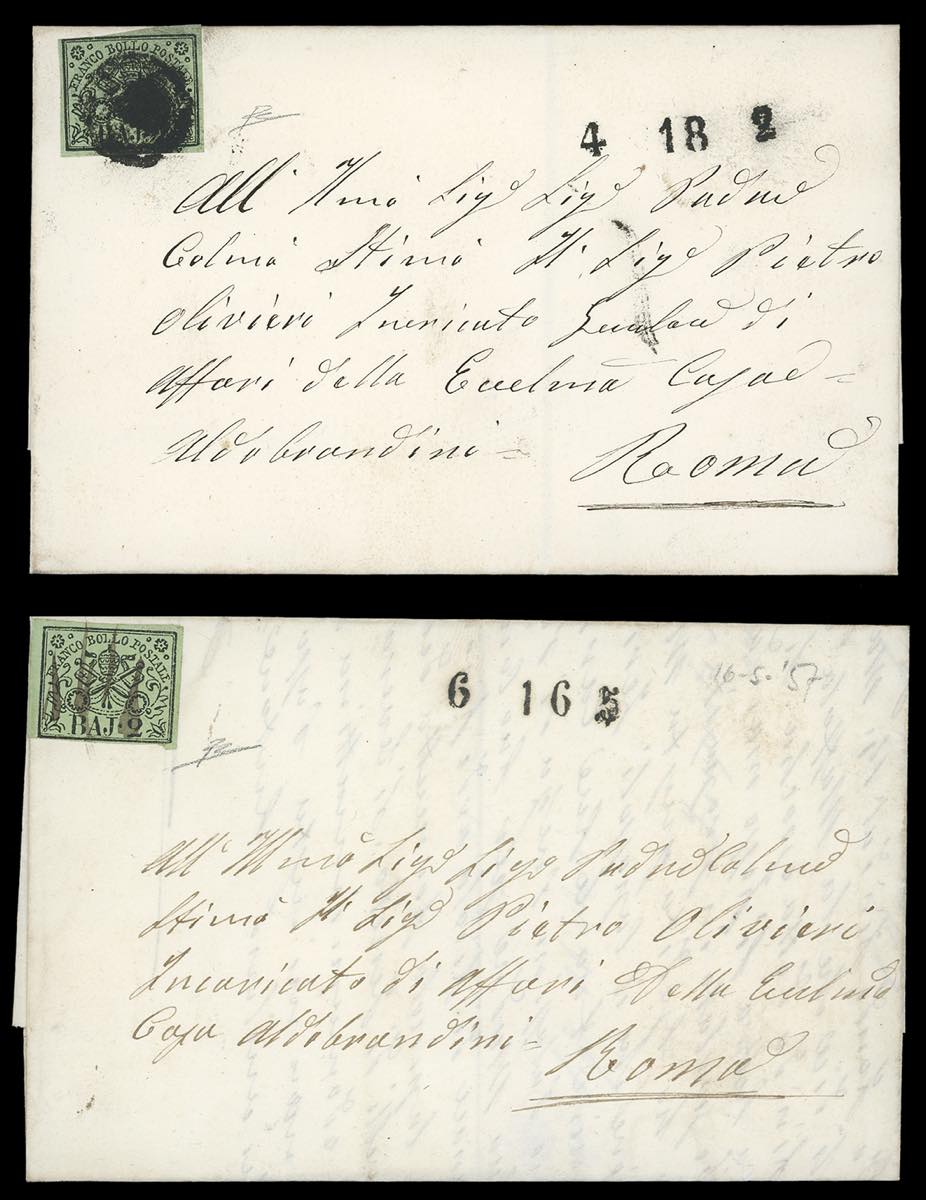 FRANCO BOLLO POSTALE
BAJ.
4 18 2
All' Illmo Sigr Sigr Padne
Colmo Stimo Il Sigr Pietro
Olivieri Incricato di
Affari della Eccelma Casa =
Aldobrandini =
Roma
FRANCO BOLLO POSTALE
BAJ. 2
6 16 5
16-5-'57
All' Illmo Sigr Sigr Padne Colmo
Stimo Il Sigr Pietro Olivieri
Incaricato di Affari Della Eccelma
Casa Aldobrandini =
Roma